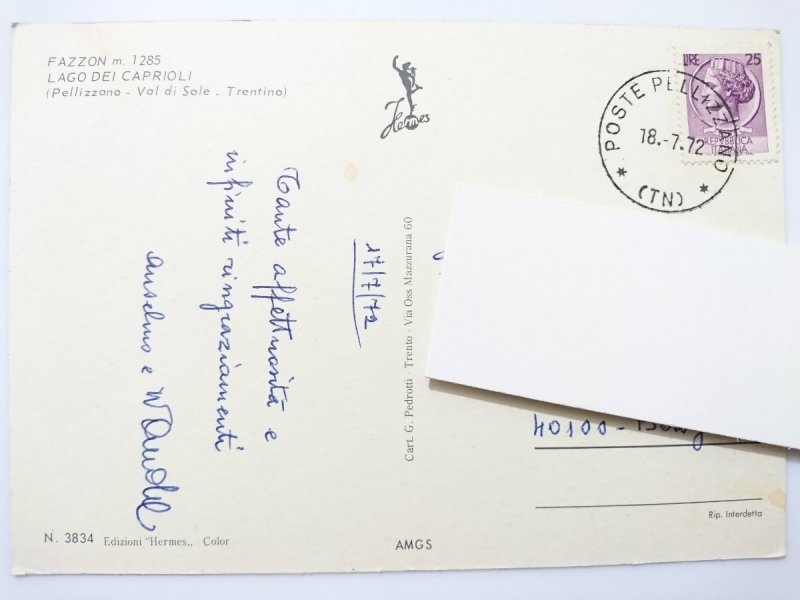 FAZZON m. 1285
LAGO DEI CAPRIOLI
(Pellizzano - Val di Sole - Trentino)
Hermes
LIRE 25
REPUBBLICA
ITALIANA
POSTE PELLIZZANO
18.-7.72
* (TN) *
Tante affettuosità e
infiniti ringraziamenti
Anselmo e
17/7/72
Cart. G. Pedrotti - Trento - Via Oss Mazzurana 60
40100 -
Rip. Interdetta
N. 3834 Edizioni "Hermes,, - Color
AMGS